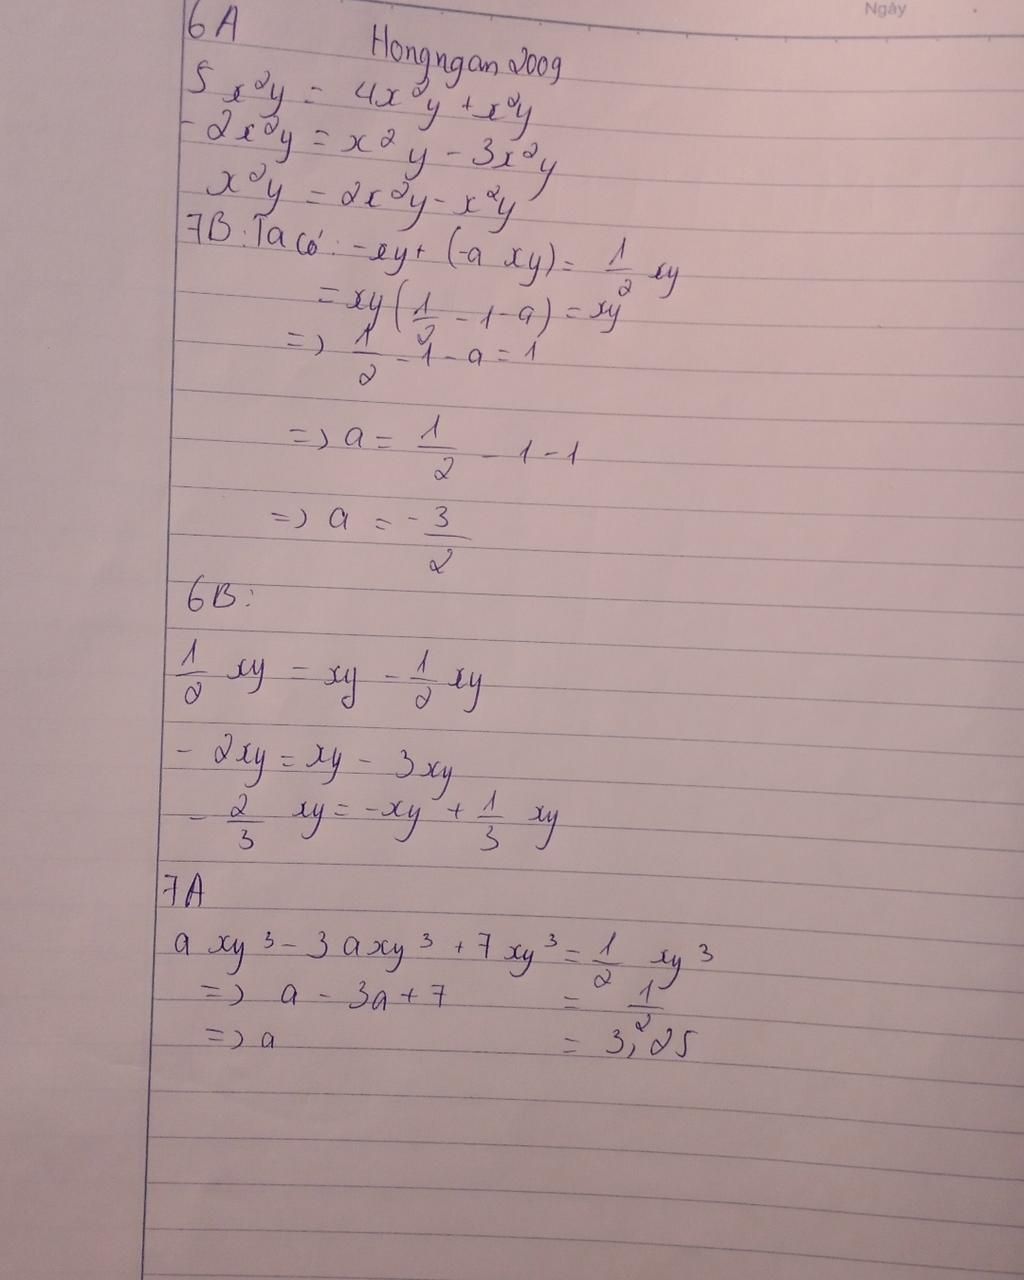 Ngày
6A
Hongngan2009
5x²y = 4x²y + x²y
- 2x²y = x²y - 3x²y
x²y = 2x²y - x²y
7B: Ta có: -xy + (-a xy) = 1/2 xy
= xy (1/2 - 1 - a) = xy
=> 1/2 - 1 - a = 1
=> a = 1/2 - 1 - 1
=> a = - 3/2
6B:
1/2 xy = xy - 1/2 xy
- 2xy = xy - 3xy
- 2/3 xy = -xy + 1/3 xy
7A
a xy³ - 3 axy³ + 7 xy³ = 1/2 xy³
=> a - 3a + 7 = 1/2
=> a = 3,25